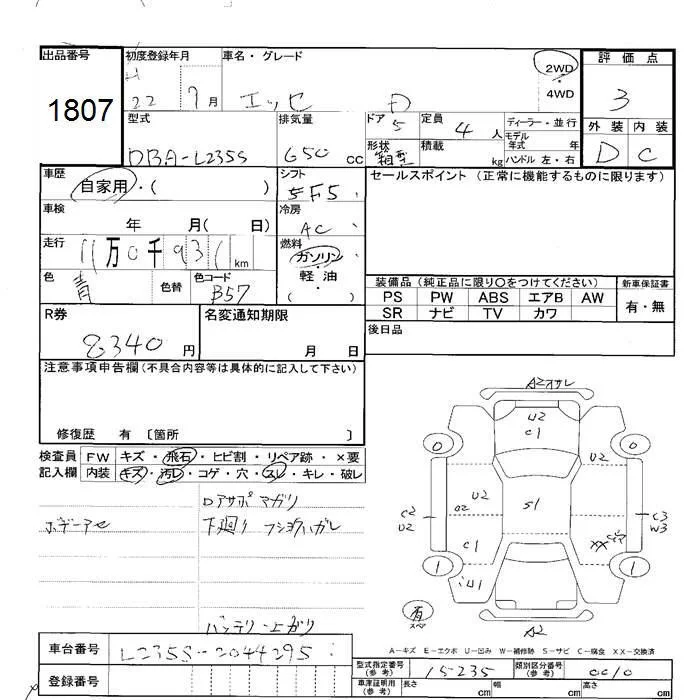 出品番号 初度登録年月 車名・グレード 評価点
1807
H 22 年 9月 エッセ D 2WD・4WD 3
型式 排気量 ドア 5 定員 4人 ディーラー・並行 外装 内装
モデル年式 年
DBA-L235S 650cc 形状 箱型 積載 kg ハンドル 左・右 D C
車歴 シフト セールスポイント(正常に機能するものに限ります)
自家用・( ) F5
車検 冷房
年 月( 日) AC
走行 燃料
11万0千931km ガソリン・軽油
色 色替 色コード ( )
青 B57
装備品(純正品に限り○をつけてください) 新車保証書
PS PW ABS エアB AW 有・無
SR ナビ TV カワ
R券 名変通知期限 後日品
8340円 月 日
注意事項申告欄(不具合内容等は具体的に記入して下さい)
修復歴 有 〔箇所 〕
検査員 FW キズ・飛石・ヒビ割・リペア跡・×要
記入欄 内装 キズ・汚レ・コゲ・穴・スレ・キレ・破レ
ロアサポ マガリ
ボデーアセ 下廻り フショクハガレ
バッテリー上ガリ
A2オサレ
U2
C1
0 0
U2
U2
C2 A2 S1 C3
U2 W3
C1 XX
1 U1 1
有 スペア
A2
A-キズ E-エクボ U-凹み W-補修跡 S-サビ C-腐食 XX-交換済
車台番号 L235S-2044295
型式指定番号(参考) 15235 類別区分番号(参考) 0010
登録番号 車庫証明用(参考) 長さ cm 幅 cm 高さ cm